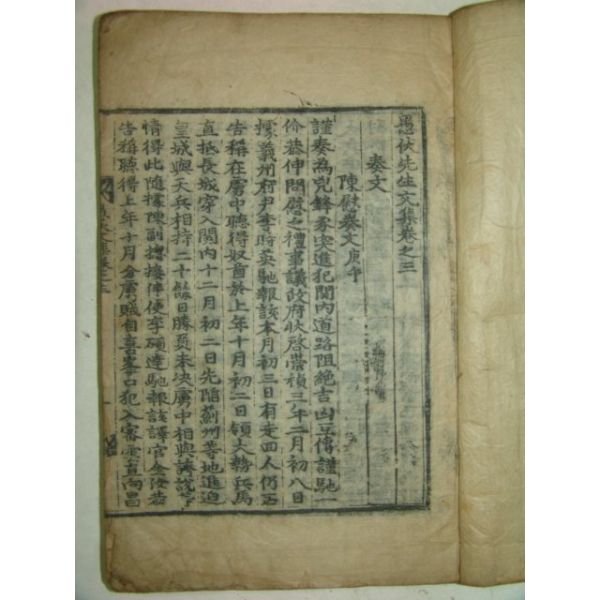 愚伏先生文集卷之三
奏文
陳慰奏文庚午
謹奏爲兇鋒豕突進犯關內道路阻絶吉凶互傳謹馳一
价恭伸問慰之禮事議政府狀啓崇禎三年二月初八日
據義州府尹李時英馳報該本月初三日有走回人仍
告稱在虜中聽得奴酋於上年十月初二日領大勢兵馬
直抵長城穿入關內十二月初二日先陷薊州等地進迫
皇城與天兵相持二十餘日勝負未決虜中相與講說等
情得此隨據陳副摠接伴使李碩達馳報該譯官金
告稱聽得上年十月分虜賊自喜峯口犯入審